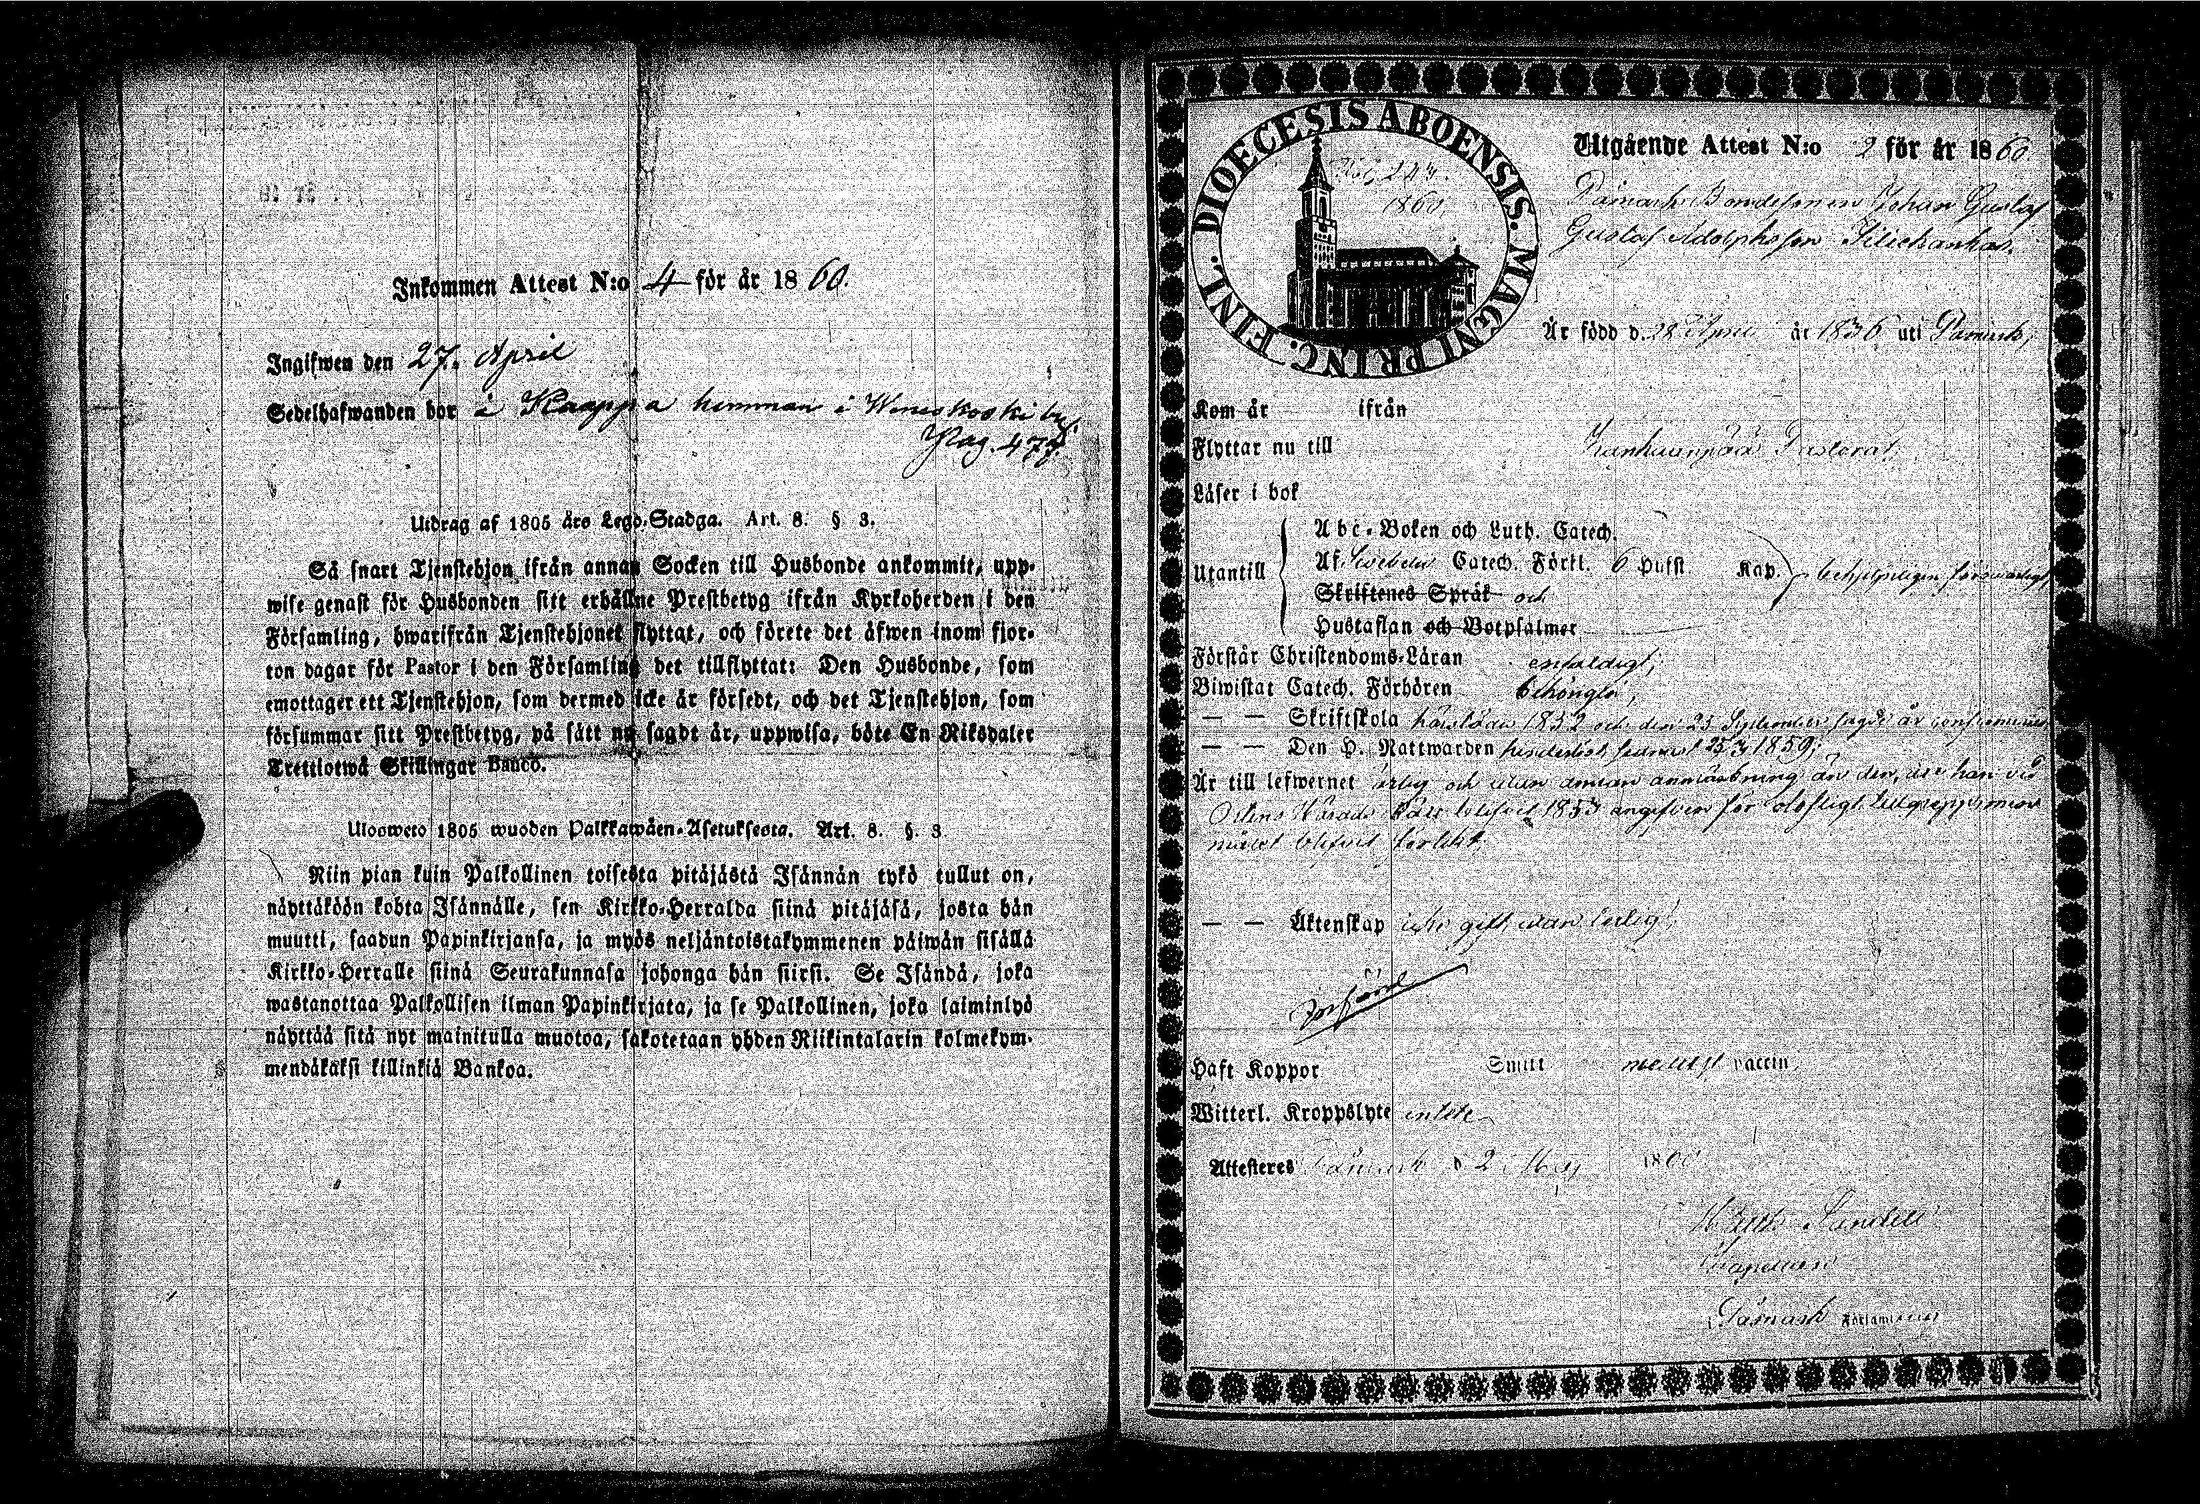 Inkommen Attest N:o 4 för år 1860.
Ingifwen den 27. April
Sedelhafwanden bor i Kaappa hemman i Weneskoski by
Pag. 477.
Utdrag af 1805 års Lego-Stadga. Art. 8. § 3.
Så snart Tjenstehjon ifrån annan Socken till Husbonde ankommit, upp-
wise genast för Husbonden sitt erhållne Prestbetyg ifrån Kyrkoherden i den
Församling, hwarifrån Tjenstehjonet flyttat, och förete det äfwen inom fjor-
ton dagar för Pastor i den Församling det tillflyttat: Den Husbonde, som
emottager ett Tjenstehjon, som dermed icke är försedt, och det Tjenstehjon, som
försummar sitt Prestbetyg, på sätt nu sagdt är, uppwisa, böte En Riksdaler
Trettiotwå Skillingar Banco.
Ulosweto 1805 wuoden Palkkawäen-Asetuksesta. Art. 8. §. 3
Niin pian kuin Palkollinen toisesta pitäjästä Isännän tykö tullut on,
näyttäköön kohta Isännälle, sen Kirkko-Herralda siinä pitäjäsä, josta hän
muutti, saadun Papinkirjansa, ja myös neljäntoistakymmenen päiwän sisällä
Kirkko-Herralle siinä Seurakunnasa johonga hän siirsi. Se Isändä, joka
wastanottaa Palkollisen ilman Papinkirjata, ja se Palkollinen, joka laiminlyö
näyttää sitä nyt mainitulla muotoa, sakotetaan yhden Riikintalarin kolmekym-
mendäkaksi killinkiä Bankoa.
DIOECESIS ABOENSIS. MAGNI PRINC. FINL.
1860
Utgående Attest N:o 2 för år 1860
Påmark Bondesonen Johan Gustaf
Gustaf Adolphsson
Är född d. 28 April år 1836 uti Påmark,
Kom år ifrån
Flyttar nu till Kankaanpää Pastorat,
Läser i bok
Utantill
Abc-Boken och Luth. Catech.
Af Swebelii Catech. Förkl. 6 Hufst Kap.
Skriftenes Språk och
Hustaflan och Botpsalmer
Förstår Christendoms-Läran enfaldigt,
Biwistat Catech. Förhören
— — Skriftskola 1852 och den 25 September
— — Den H. Nattwarden 1859;
Är till lefwernet ärlig och utan annan anmärkning än den, att han vid
1853 angifven för
— — Äktenskap icke gift utan ledig
Haft Koppor Smitt medelst vaccin,
Witterl. Kroppslyte intete
Attesteres Påmark d 2 Maj 1860
Påmark Församling